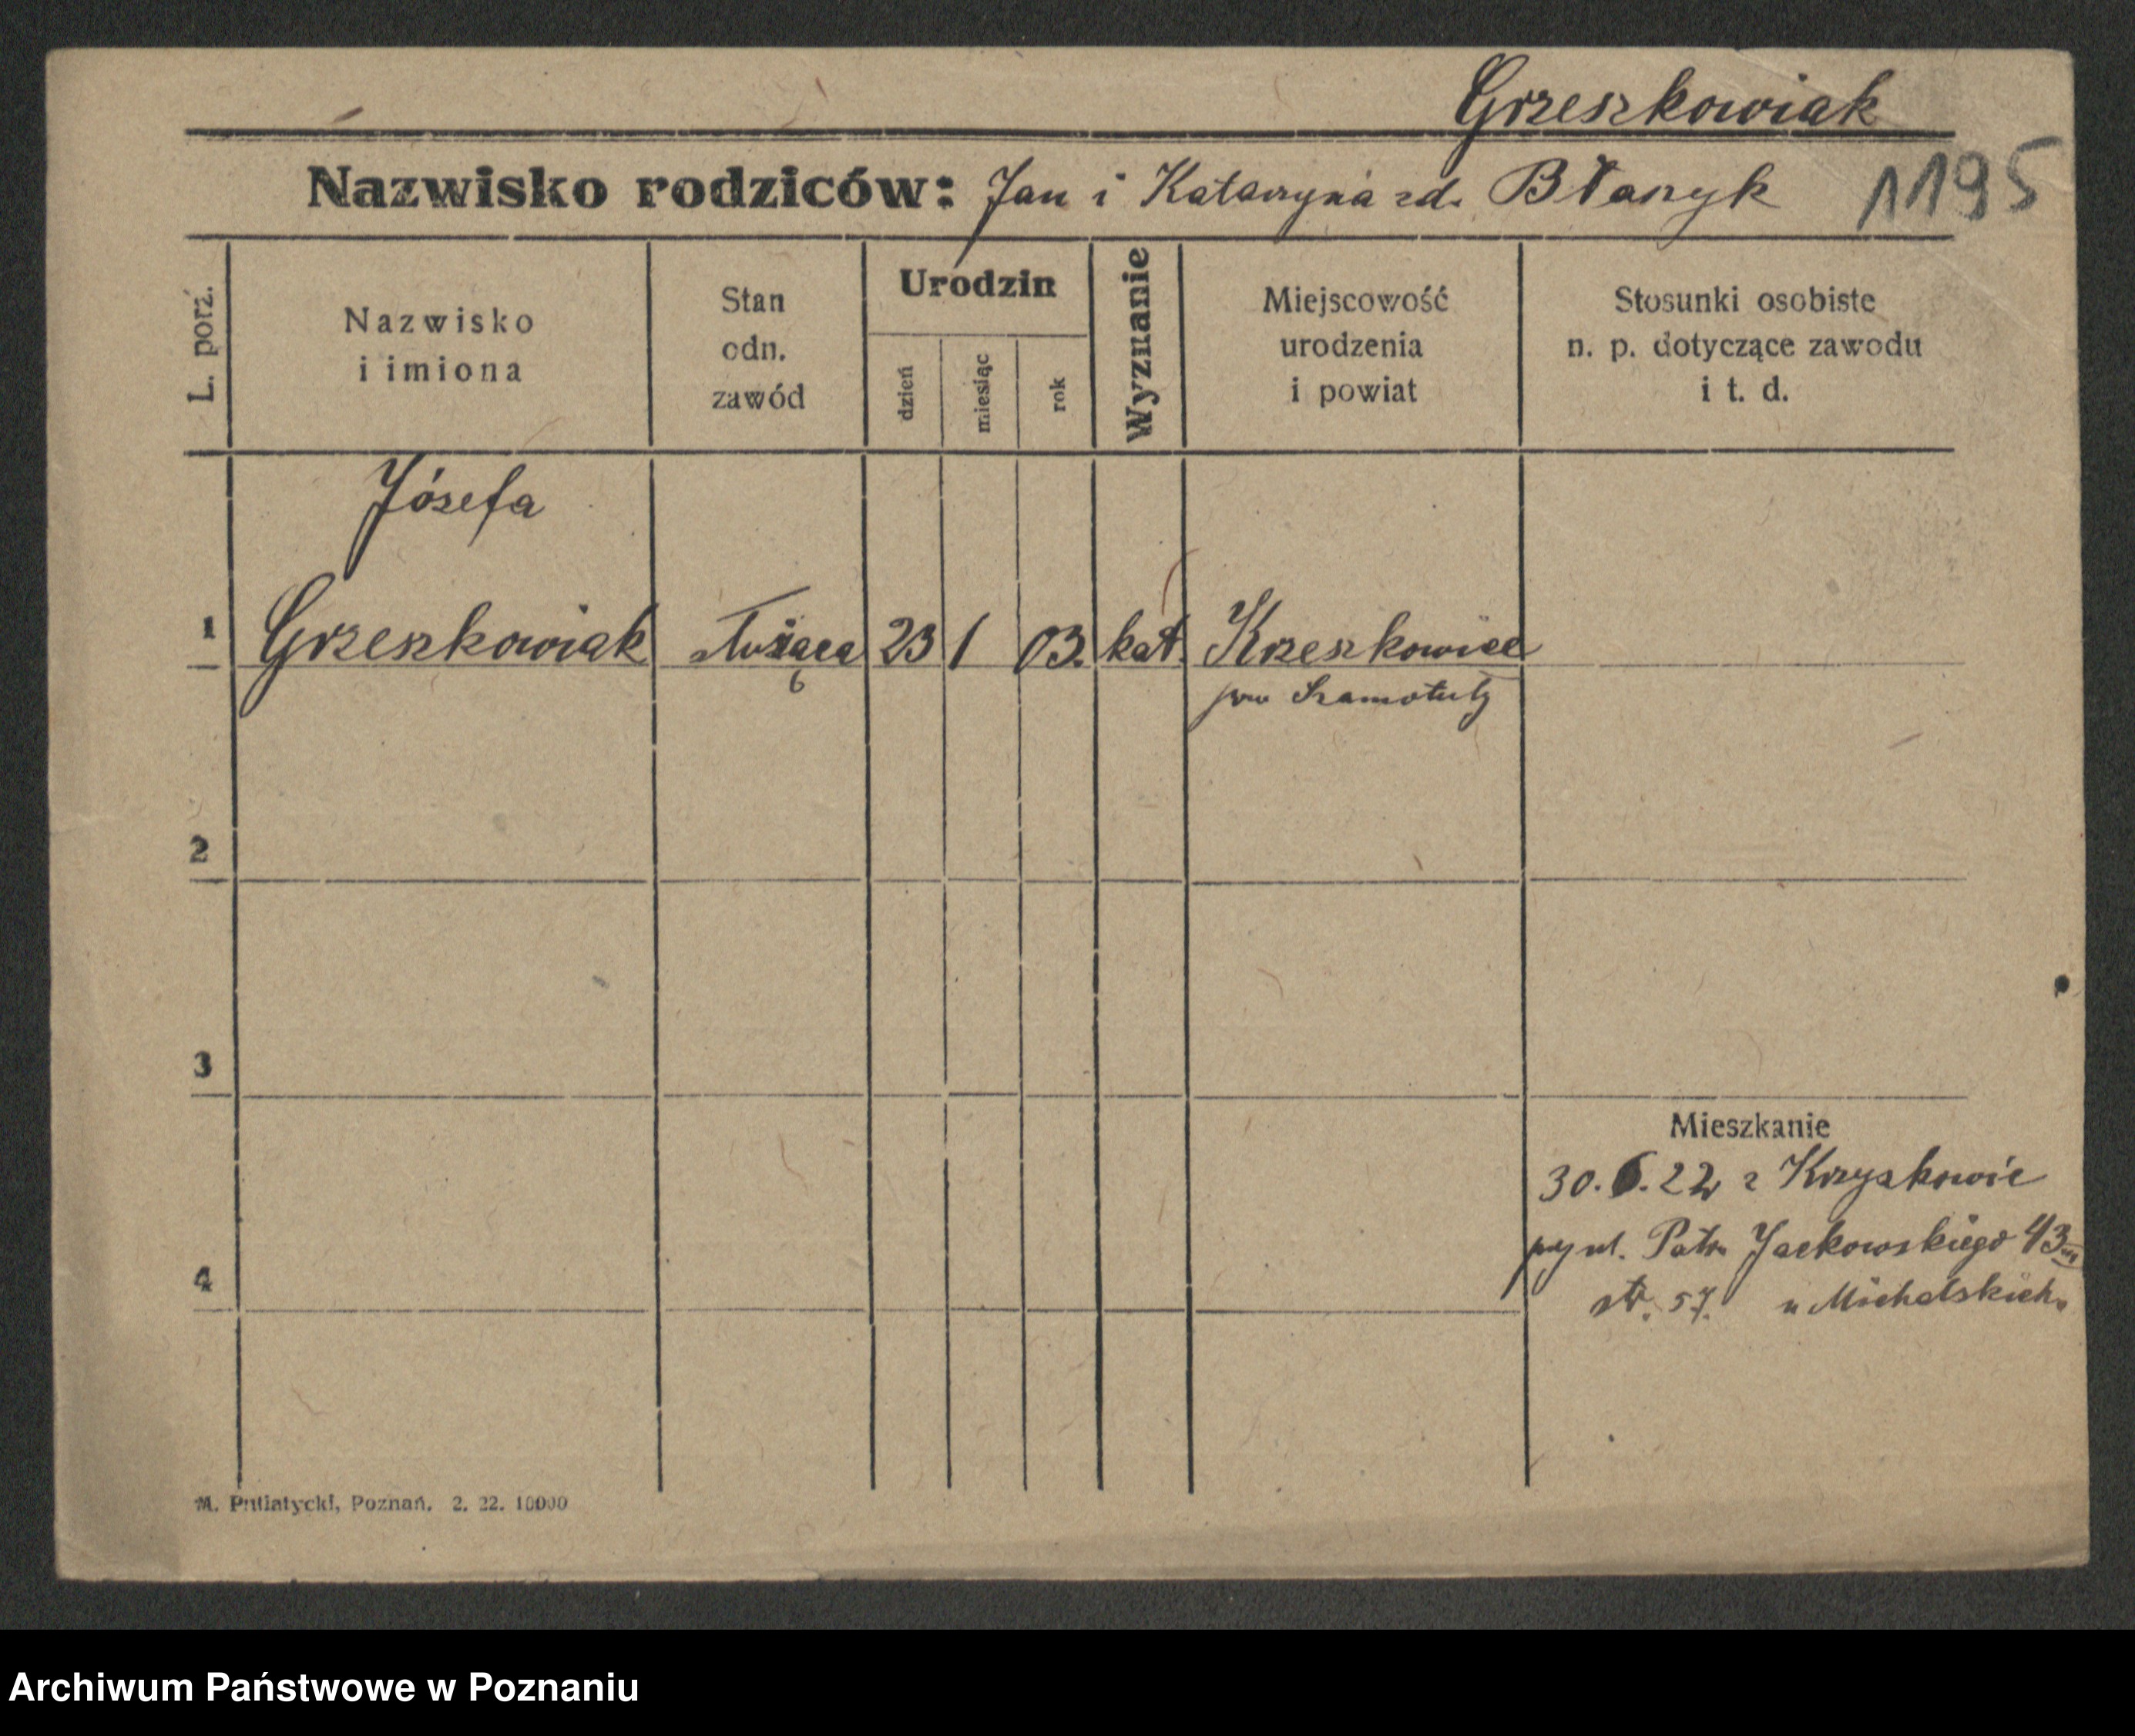 Grzeszkowiak
Nazwisko rodziców: Jan i Katarzyna zd. Błaszyk 1195
L. porz.
Nazwisko
i imiona
Stan
odn.
zawód
Urodzin
dzień
miesiąc
rok
Wyznanie
Miejscowość
urodzenia
i powiat
Stosunki osobiste
n. p. dotyczące zawodu
i t. d.
Józefa
1 Grzeszkowiak służąca 23 1 03. kat. Krzeszkowice
pow Szamotuły
2
3
Mieszkanie
30. 6. 22 z Krzyszkowic
przy ul. Patr. Jackowskiego 43
4
str. 57. u Michalskich.
M. Putiatycki, Poznań. 2. 22. 10000
Archiwum Państwowe w Poznaniu